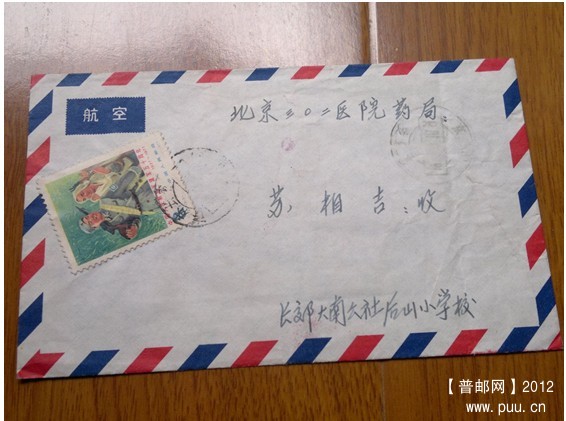 航空
北京三〇二医院药局:
苏相吉:收
长郊大南六社后山小学校
【普邮网】2012
www.puu.cn